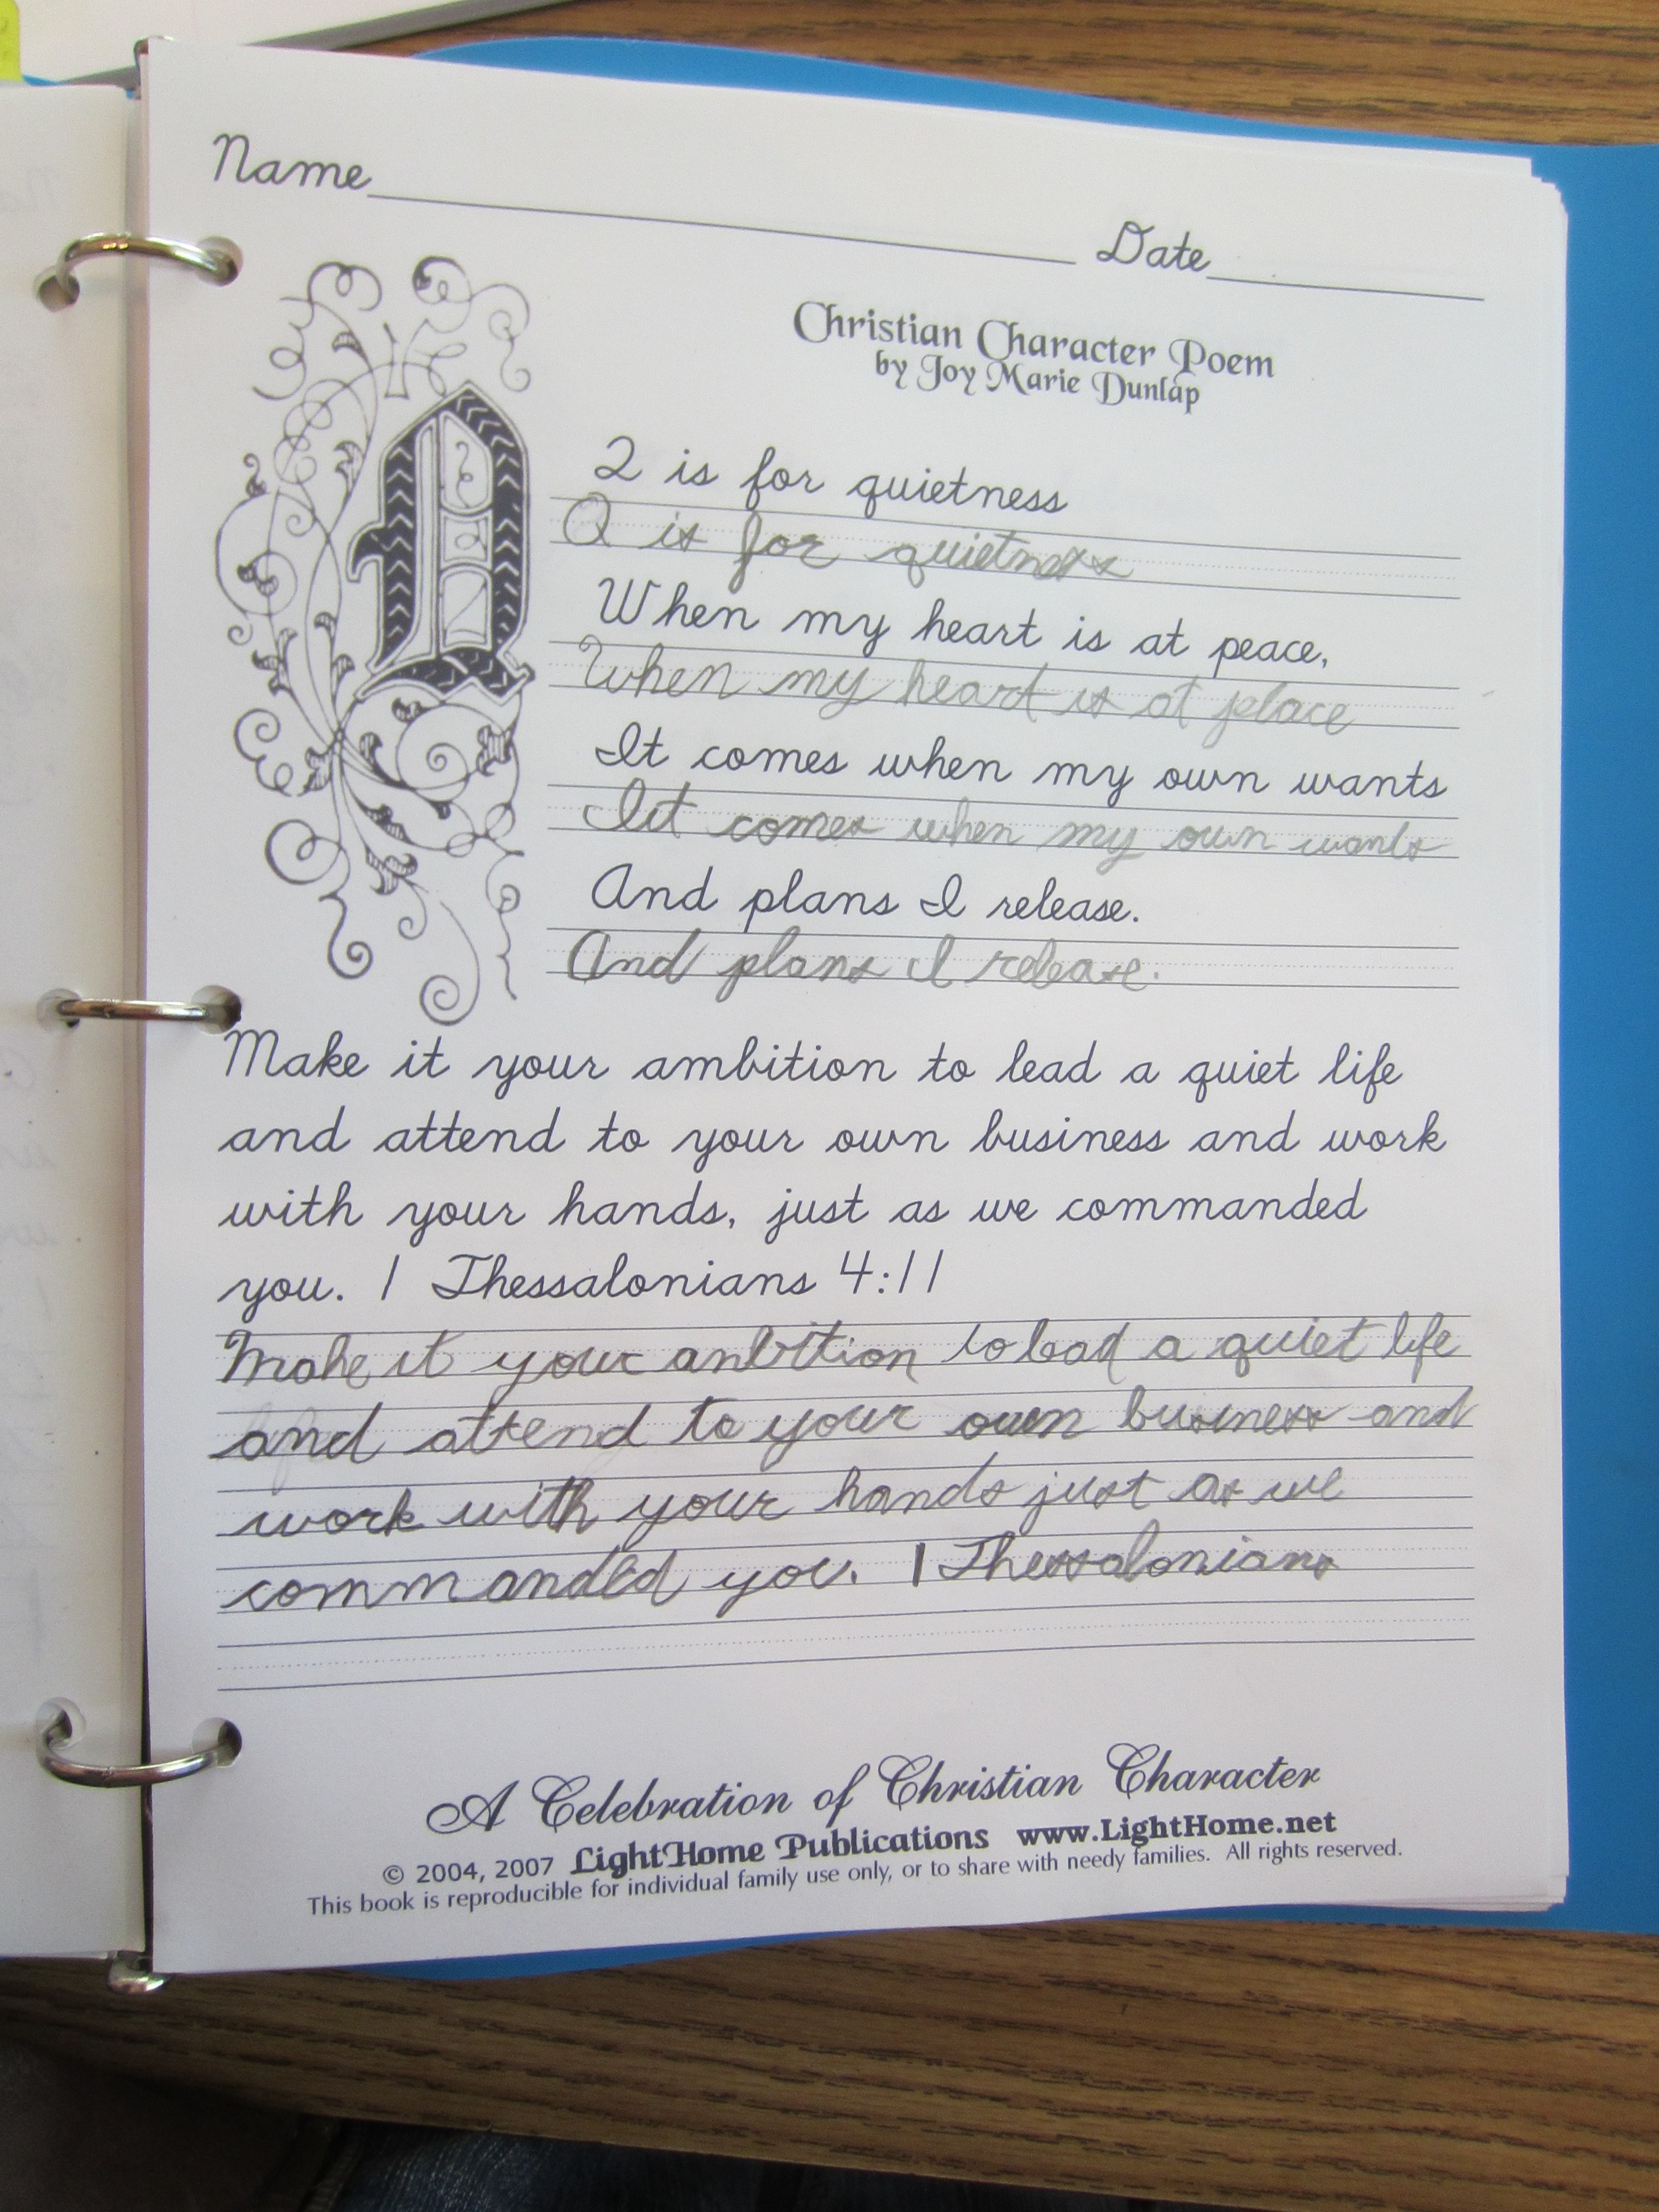 Name Date
Christian Character Poem
by Joy Marie Dunlap
Q is for quietness
Q is for quietness
When my heart is at peace,
When my heart is at place
It comes when my own wants
Iit comes when my own wants
And plans I release.
And plans I release.
Make it your ambition to lead a quiet life
and attend to your own business and work
with your hands, just as we commanded
you. 1 Thessalonians 4:11
Make it your anbition to lead a quiet life
and attend to your own business and
work with your hands just as we
commanded you. 1 Thessalonians
A Celebration of Christian Character
© 2004, 2007 LightHome Publications www.LightHome.net
This book is reproducible for individual family use only, or to share with needy families. All rights reserved.